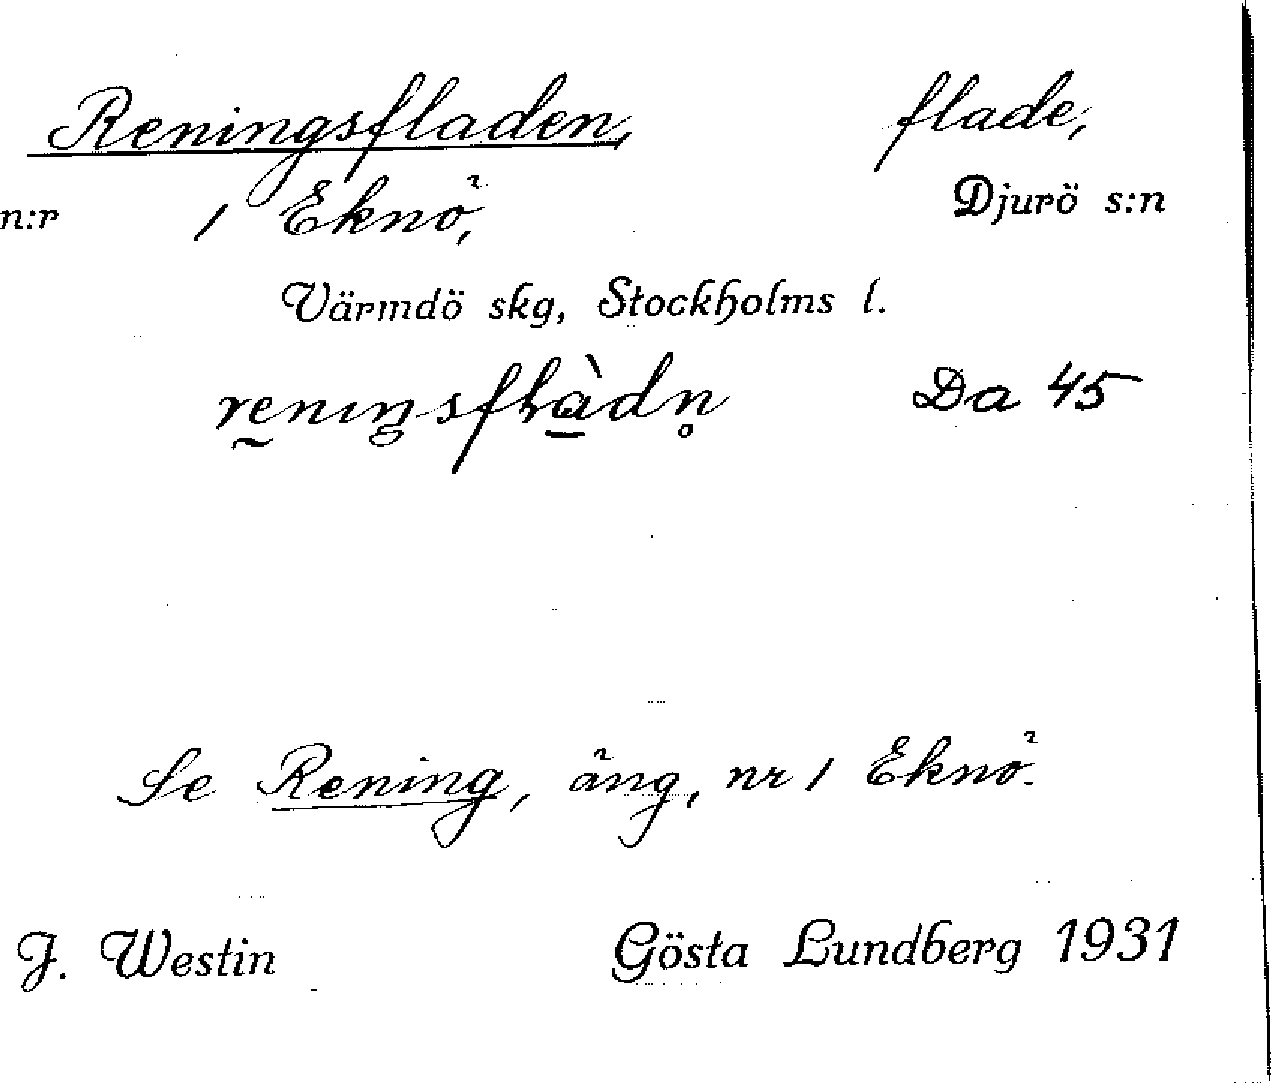 Reningsfladen, flade,
n:r 1 Eknö, Djurö s:n
Värmdö skg, Stockholms l.
Da 45
Se Rening, äng, nr 1 Eknö.
J. Westin Gösta Lundberg 1931